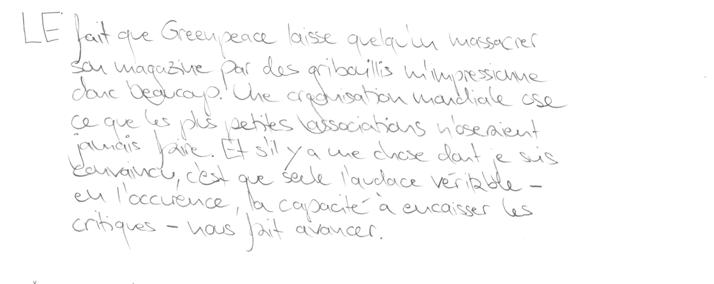 LE fait que Greenpeace laisse quelqu'un massacrer
son magazine par des gribouillis m'impressionne
donc beaucoup. Une organisation mondiale ose
ce que les plus petites associations n'oseraient
jamais faire. Et s'il y a une chose dont je suis
convaincu, c'est que seule l'audace véritable –
en l'occurence, la capacité à encaisser les
critiques – nous fait avancer.